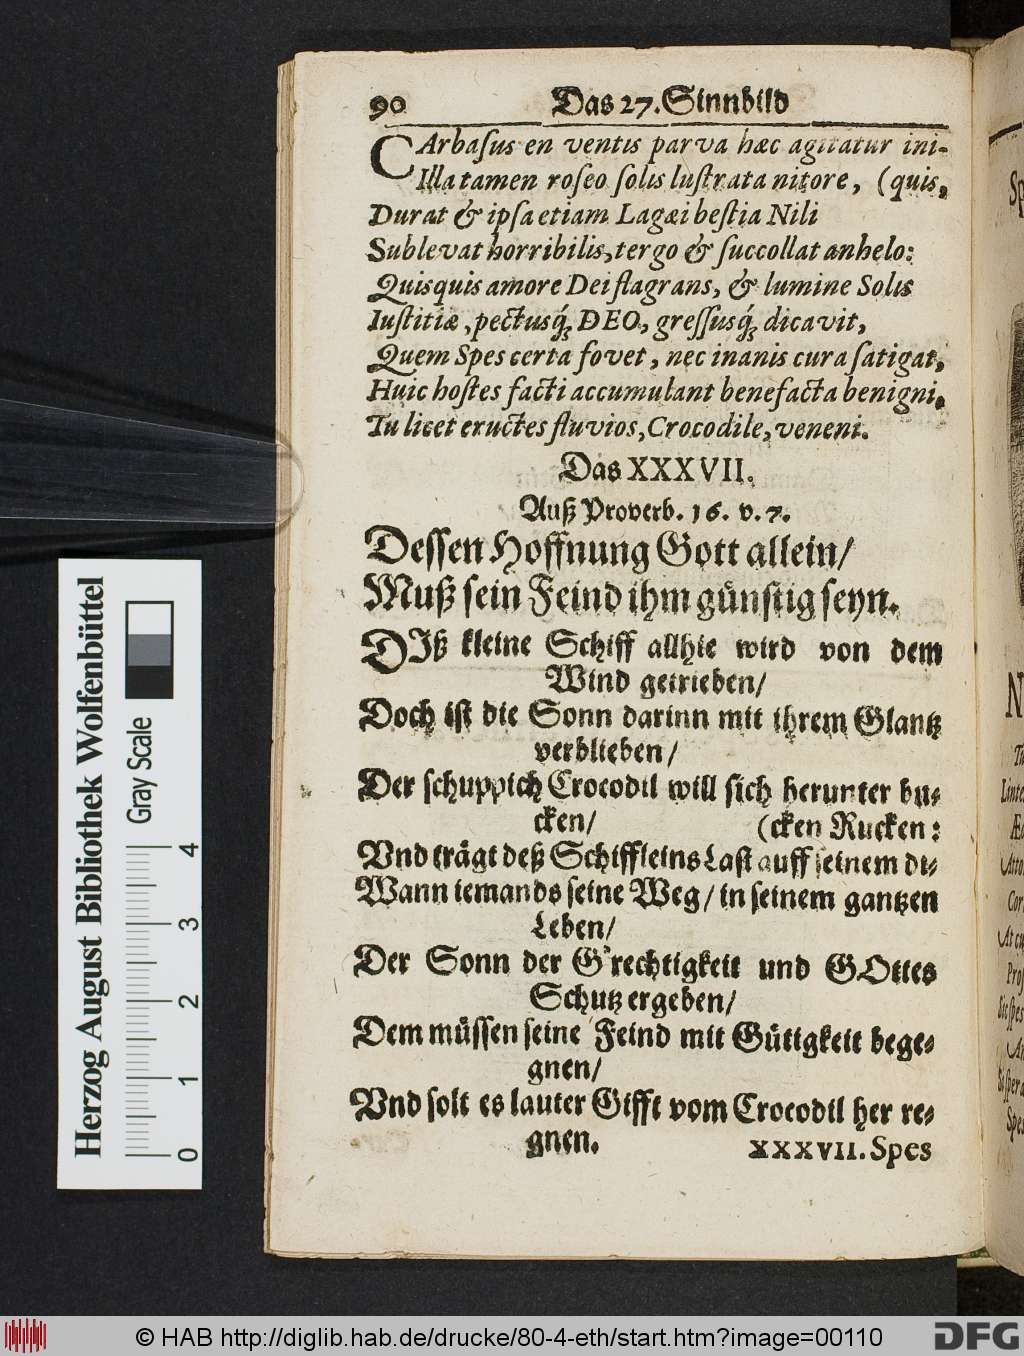 90 Das 27. Sinnbild
CArbaſus en ventis parva hæc agitatur ini-
Illa tamen roſeo ſolis luſtrata nitore, (quis,
Durat & ipſa etiam Lagæi beſtia Nili
Sublevat horribilis, tergo & ſuccollat anhelo:
Quisquis amore Dei flagrans, & lumine Solis
Iuſtitiæ, pectusq́ꝫ DEO, greſſusq́ꝫ dicavit,
Quem Spes certa fovet, nec inanis cura fatigat,
Huic hoſtes facti accumulant benefacta benigni,
Tu licet eructes fluvios, Crocodile, veneni.
Das XXXVII.
Auß Proverb. 16. v. 7.
Deſſen Hoffnung Gott allein/
Muß ſein Feind ihm günſtig ſeyn.
DIß kleine Schiff allhie wird von dem
Wind getrieben/
Doch iſt die Sonn darinn mit ihrem Glantz
verblieben/
Der ſchuppich Crocodil will ſich herunter bu-
cken/ (cken Rucken:
Vnd trägt deß Schiffleins Laſt auff ſeinem di-
Wann iemands ſeine Weg/ in ſeinem gantzen
Leben/
Der Sonn der G'rechtigkeit und GOttes
Schutz ergeben/
Dem müſſen ſeine Feind mit Gütigkeit bege-
gnen/
Vnd ſolt es lauter Gifft vom Crocodil her re-
gnen. XXXVII. Spes
Herzog August Bibliothek Wolfenbüttel
Gray Scale
0 1 2 3 4
© HAB http://diglib.hab.de/drucke/80-4-eth/start.htm?image=00110
DFG